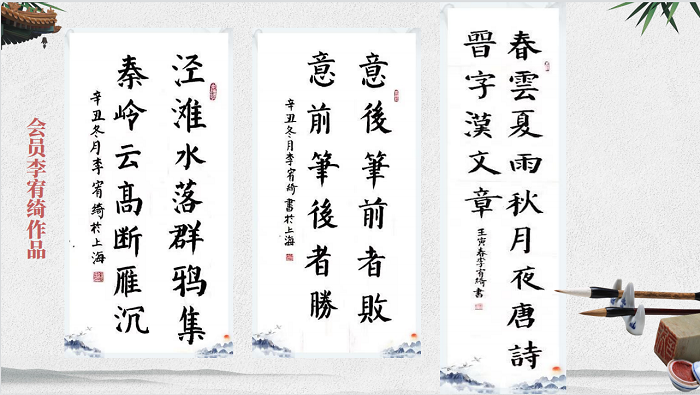 会员李宥绮作品
泾滩水落群鸦集
秦岭云高断雁沉
辛丑冬月李宥绮於上海
意後筆前者敗
意前筆後者勝
辛丑冬月李宥绮書於上海
春雲夏雨秋月夜唐詩
晋字漢文章
壬寅春李宥绮書